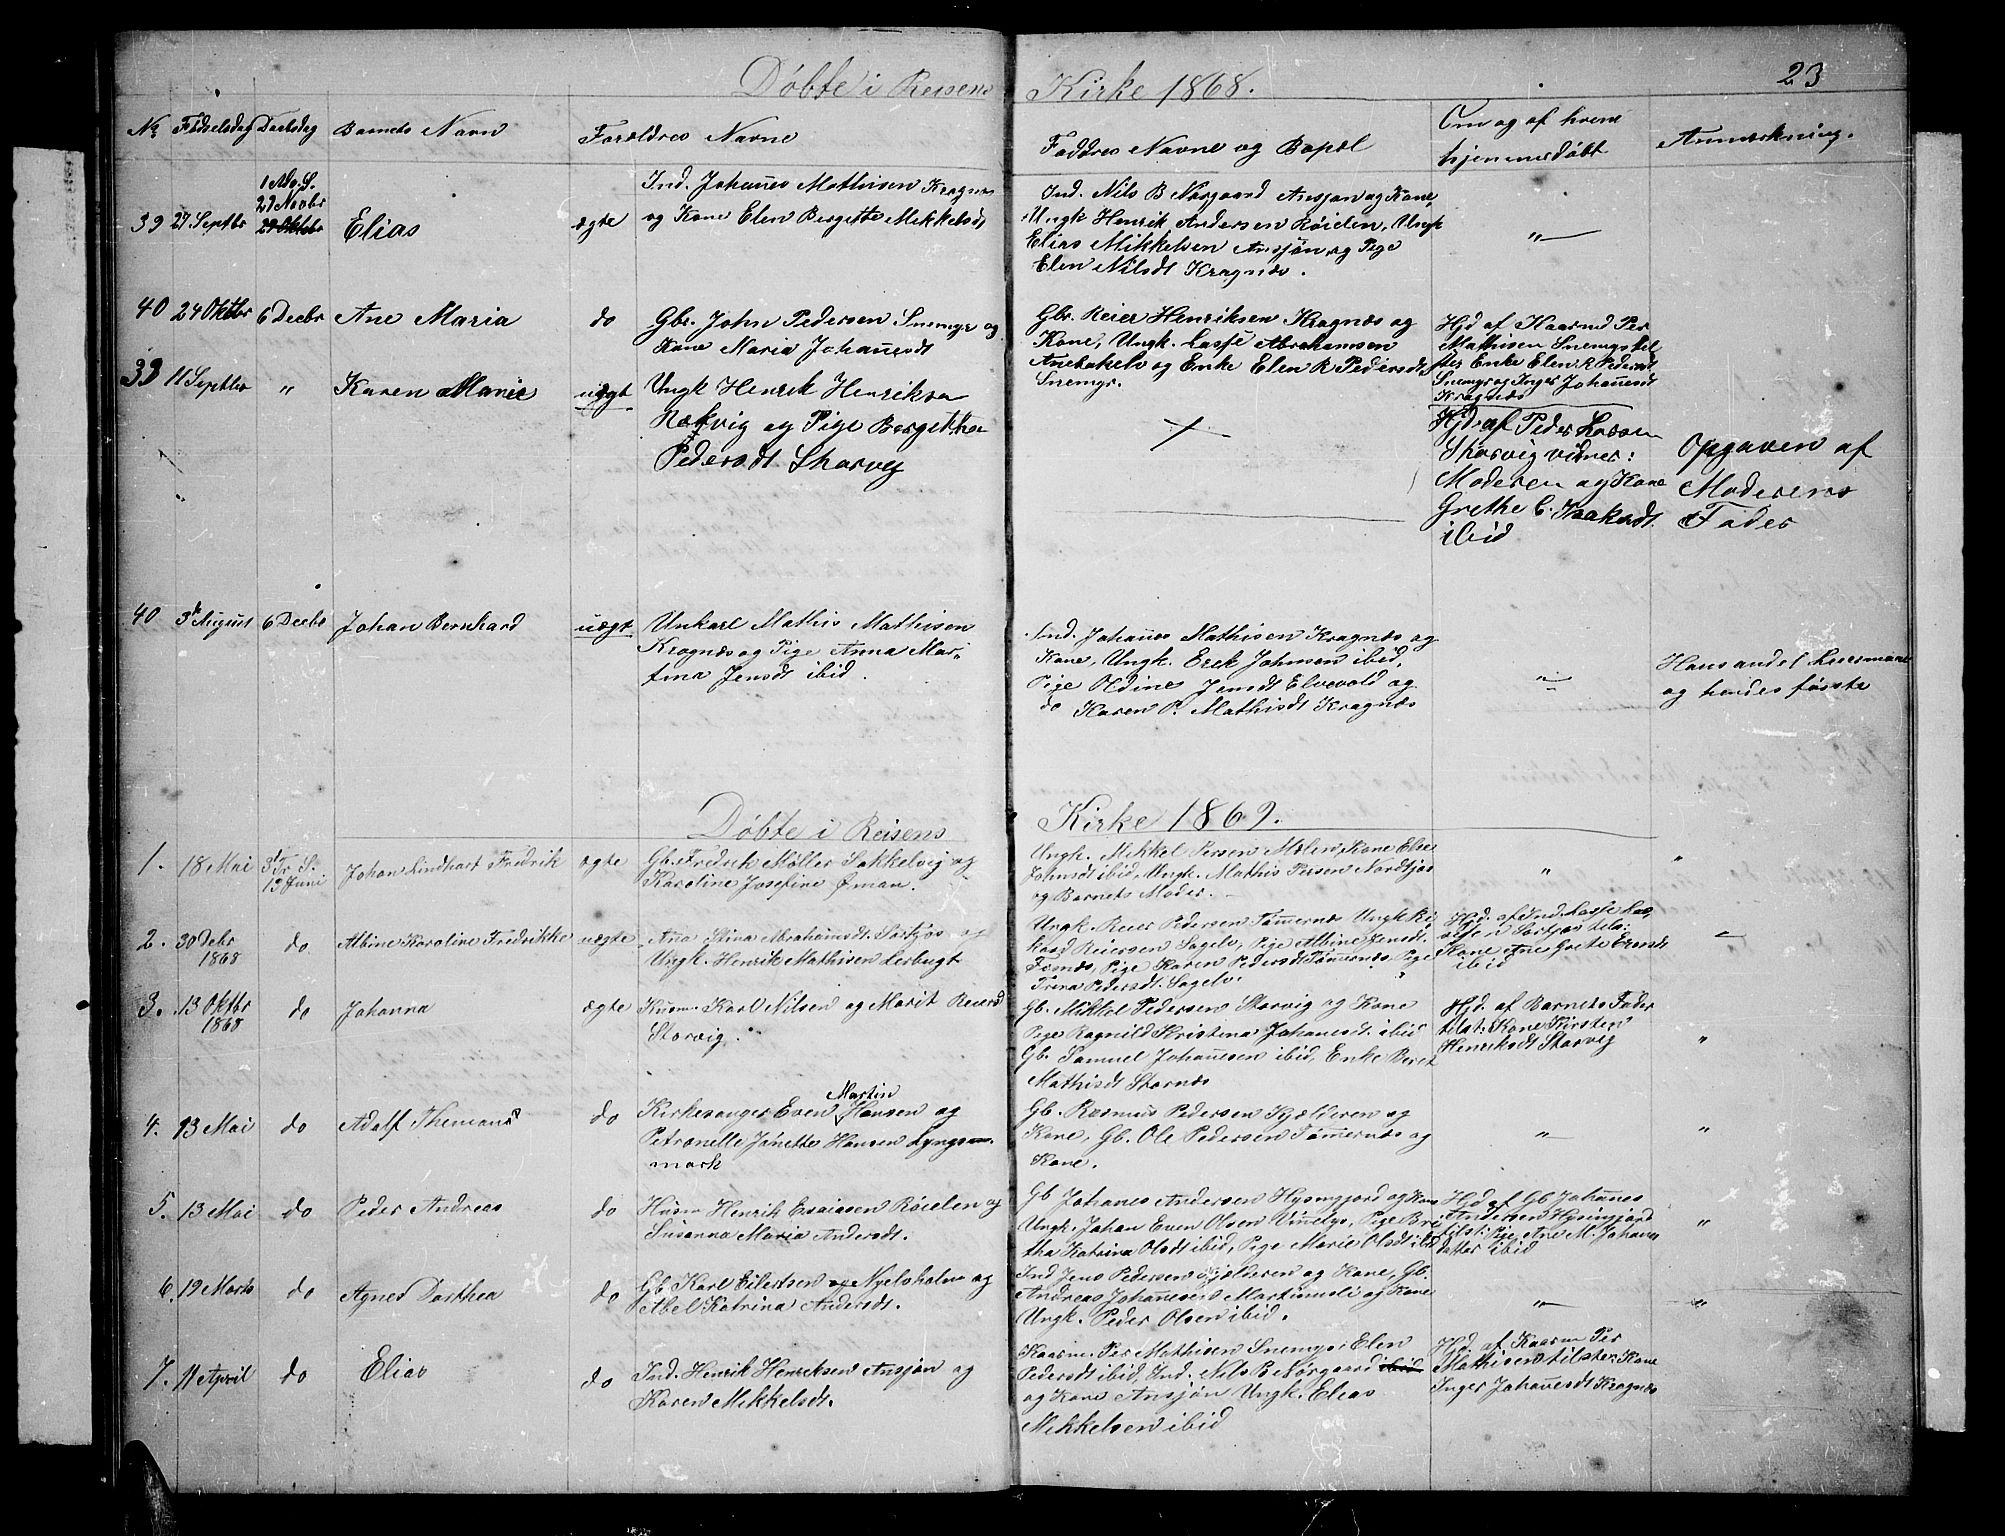 Døbte i Reisens Kirke 1868. 23
No Fødselsdag Daabsdag Barnets Navn Forældres Navne Faddres Navne og Bopæl Om og af hvem hjemmedøbt Anmærkning.
39 27 Septbr 1 Adv. S. 29 Novbr Elias ægte
Ind. Johañes Mathisen Kragnæs
og Kone Elen Bergitte Mikkelsdt
Ind. Nils B Nørgaard Ansjøn og Kone,
Ungk Henrik Andersen Røielen, Ungk
Elias Mikkelsen Ansjøn og Pige
Elen Nilsdt Kragnæs.
"
40 24 Oktbr 6 Decbr Ane Maria do
Gbr. John Pedersen Snemyr og
Kone Maria Johañesdt
Gbr. Reier Henriksen Kragnæs og
Kone, Ungk. Lasse Abrahamsen
og Enke Elen R Pedersdt
Snemyr.
Hjd af Kaarmd Per
Mathisen Snemyr til
ster Enke Elen R Pedersdt
Snemyr og Inger Johañesdt
Kragnæs
33 11 Septbr " Karen Marie uægt
Ungk Henrik Henriksen
og Pige Bergitha
Pedersdt Storvig
Hjd af Peder Larsen
Storvig vidner:
Moderen og Kone
Grethe C.
ibid
Opgaven af
Moderens
Fader
40 3 August 6 Decbr Johan Bernhard uægt
Unkarl Mathis Mathisen
Kragnæs og Pige Anna Mar-
tina Jensdt ibid.
Ind. Johañes Mathisen Kragnæs og
Kone, Ungk. Erek Johnsen ibid,
Pige Oldine Jensdt Elvevold og
do Karen P. Mathisdt Kragnæs
"
Hans andet Leiermaal
og hendes første
Døbte i Reisens Kirke 1869.
1. 18 Mai 3 Tr. S. 13 Juni Johan Lindhart Fredrik ægte
Gb. Fredrik Møller Sokkelvig og
Karoline Josefine Øman.
Ungk. Mikkel Persen Molen, Kone Else
Johnsdt ibid, Ungk. Mathis Persen Nordkjos
og Barnets Moder.
" "
2. 30 Decbr 1868 do Albine Karoline Fredrikke uægte
Ana Stina Abrahamsdt. Sørkjos og
Ungk. Henrik Mathisen Lerbugt
Ungk. Reier Pedersen Tømernæs Ungk Ri-
kard Reiersen Sagelv, Pige Albine Jensdt.
Pige Karen Pedersdt Tømernæs, Pige
Trina Pedersdt. Sagelv.
Hjd. af Ind. Lasse Las-
sen Sørkjos tilst.
Kone Ane Grete
ibid
3. 13 Oktbr 1868 do Johanna ægte
Husm. Karl Nilsen og Marit Reiersd
Storvig.
Gb. Mikkel Pedersen Storvig og Kone
Pige Ragnild Kristina Johanesdt. ibid
Gb. Samuel Johañesen ibid, Enke Beret
Mathisdt Stornæs
Hjd. af Barnets Fader
tilst: Kone Kirsten
Henriksdt Storvig
"
4. 13 Mai do Adolf do
Kirkesanger Even Martin Hansen og
Petronelle Janette Hansen Lyngs-
mark
Gb. Rasmus Pedersen Kjælderen og
Kone, Gb. Ole Pedersen Tømernæs og
Kone.
" "
5. 13 Mai do Peder Andreas do
Husm Henrik Esaiasen Røielen og
Susanna Maria Andersdt.
Gb Johanes Andersen Hysingjord og Kone
Ungk. Johan Even Olsen Pige Bri-
tha Katrina Olsdt ibid, Pige Marie Olsdt ibid
Hjd af Gb Johañes
Andersen Hysingjord
tilst: Pige Ane M. Johanes
datter ibid
"
6. 19 Marts do Agnes Dorthea do
Gb Karl Eilertsen og Nyelvholm og
Abel Katrina Andersdt.
Ind Jens Pedersen Kjælderen og Kone, Gb.
Andreas Johañesen og Kone
Ungk. Peder Olsen ibid.
" "
7. 11 April do Elias do
Ind. Henrik Henriksen Ansjøn og
Karen Mikkelsdt.
Kaarm. Per Mathisen Snemyr Elen
Pedersdt ibid, Ind. Nils B Nørgaard ibid
og Kone Ansjøn Ungk. Elias
Mikkelsen ibid
Hjd. af Kaarm Per
Mathisen tilster Kone
Inger Johañesdt Kragnæs